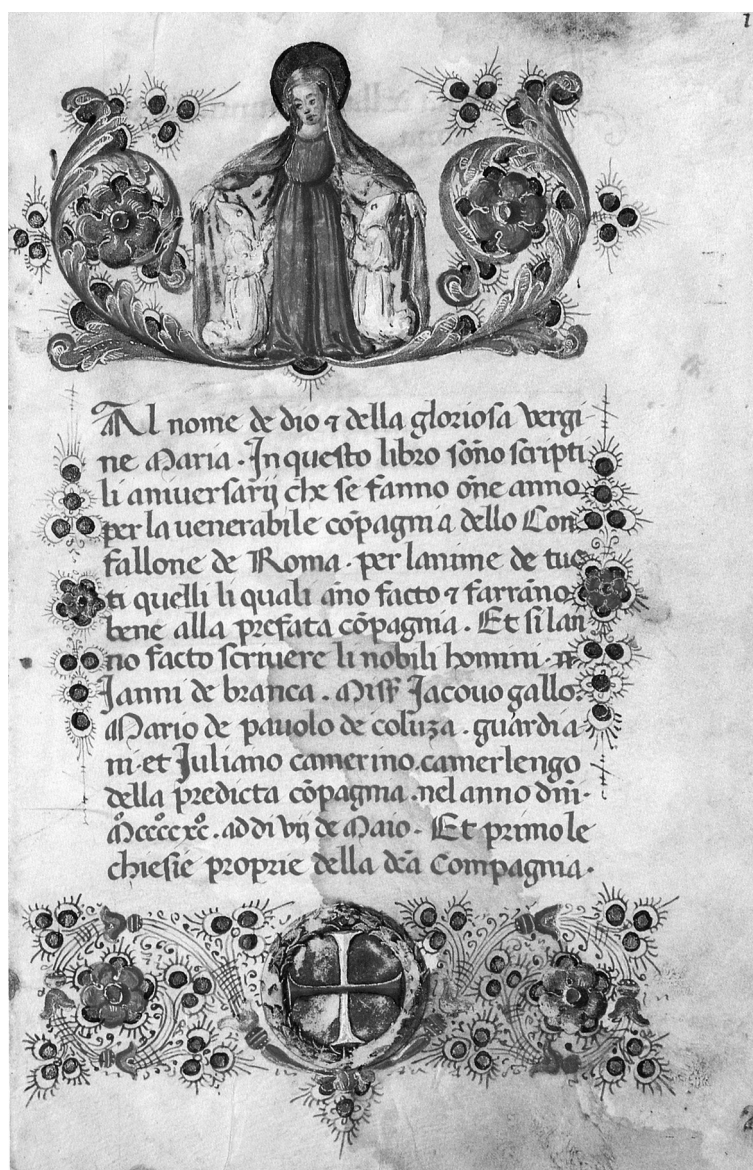 1
Al nome de dio ⁊ della gloriosa vergi
ne Maria. In questo libro sōno scripti
li anniversarij che se fanno ōne anno
per la uenerabile cōpagnia dello Con
fallone de Roma. per lanime de tuc
ti quelli li quali āno facto ⁊ farrāno
bene alla prefata cōpagnia. Et si lan
no facto scriuere li nobili homini.
Ianni de branca. Miss̄ Jacouo gallo.
Mario de pauolo de coluza. guardia
ni. et Juliano camerino. camerlengo
della predicta cōpagnia. nel anno dm̄i.
Mcccc xc. ad di vij de Maio. Et primo le
chiesie proprie della dc̄a Compagnia.